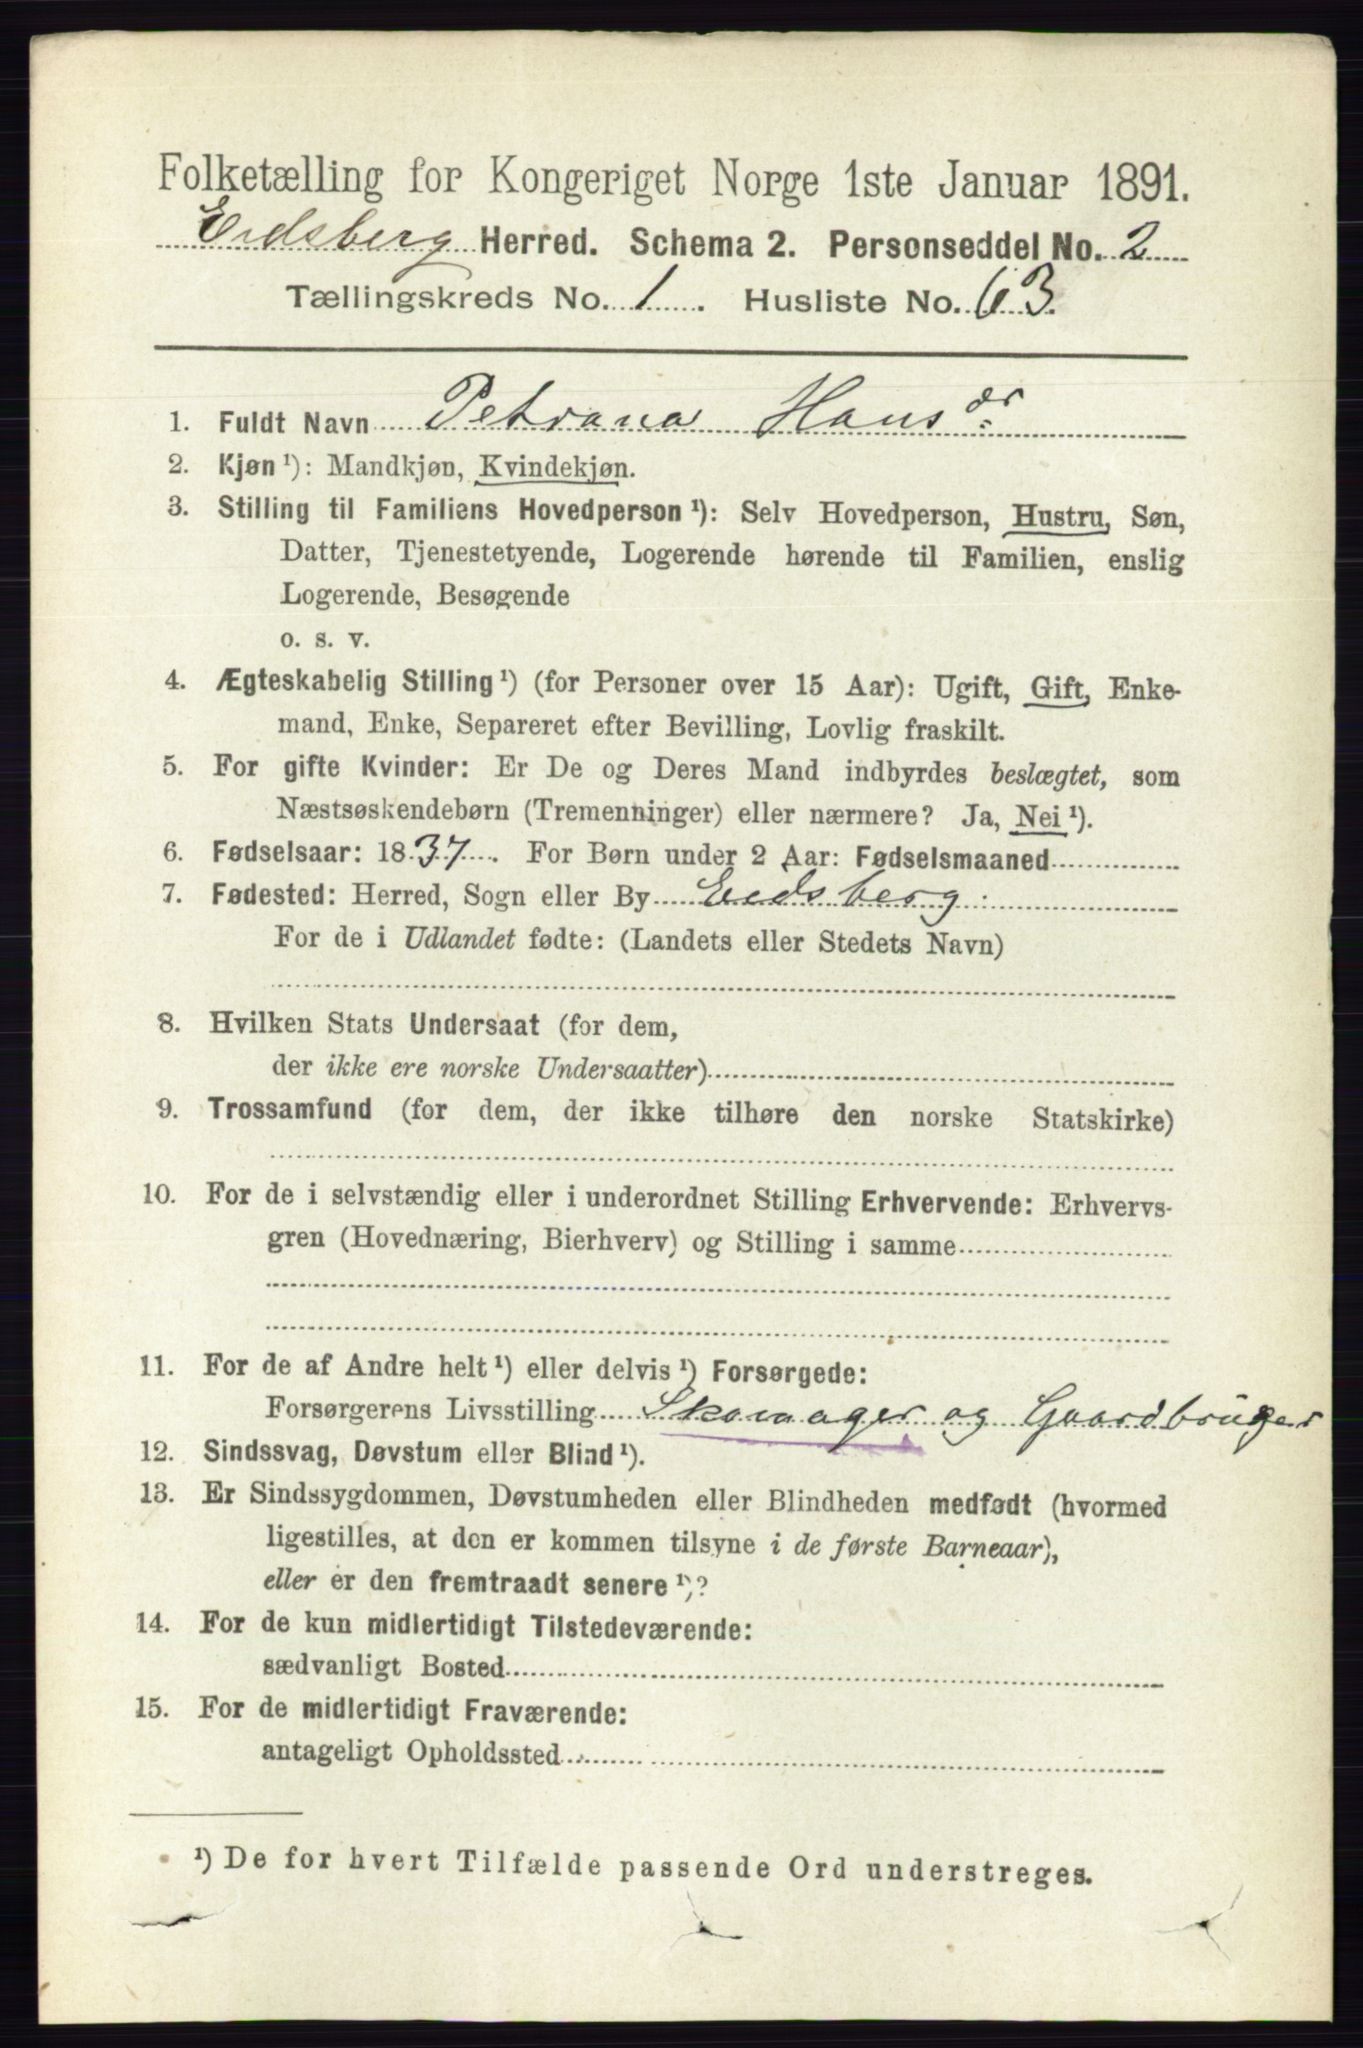 Folketælling for Kongeriget Norge 1ste Januar 1891.
Eidsberg Herred. Schema 2. Personseddel No. 2
Tællingskreds No. 1. Husliste No. 63.
1. Fuldt Navn Petrana Hans dr
2. Kjøn ¹): Mandkjøn, Kvindekjøn.
3. Stilling til Familiens Hovedperson ¹): Selv Hovedperson, Hustru, Søn,
Datter, Tjenestetyende, Logerende hørende til Familien, enslig
Logerende, Besøgende
o. s. v.
4. Ægteskabelig Stilling ¹) (for Personer over 15 Aar): Ugift, Gift, Enke-
mand, Enke, Separeret efter Bevilling, Lovlig fraskilt.
5. For gifte Kvinder: Er De og Deres Mand indbyrdes beslægtet, som
Næstsøskendebørn (Tremenninger) eller nærmere? Ja, Nei ¹).
6. Fødselsaar: 1837. For Børn under 2 Aar: Fødselsmaaned
7. Fødested: Herred, Sogn eller By Eidsberg.
For de i Udlandet fødte: (Landets eller Stedets Navn)
8. Hvilken Stats Undersaat (for dem,
der ikke ere norske Undersaatter)
9. Trossamfund (for dem, der ikke tilhøre den norske Statskirke)
10. For de i selvstændig eller i underordnet Stilling Erhvervende: Erhvervs-
gren (Hovednæring, Bierhverv) og Stilling i samme
11. For de af Andre helt ¹) eller delvis ¹) Forsørgede:
Forsørgerens Livsstilling Skomager og Gaardbrüger
12. Sindssvag, Døvstum eller Blind ¹).
13. Er Sindssygdommen, Døvstumheden eller Blindheden medfødt (hvormed
ligestilles, at den er kommen tilsyne i de første Barneaar),
eller er den fremtraadt senere ¹)?
14. For de kun midlertidigt Tilstedeværende:
sædvanligt Bosted
15. For de midlertidigt Fraværende:
antageligt Opholdssted
¹) De for hvert Tilfælde passende Ord understreges.